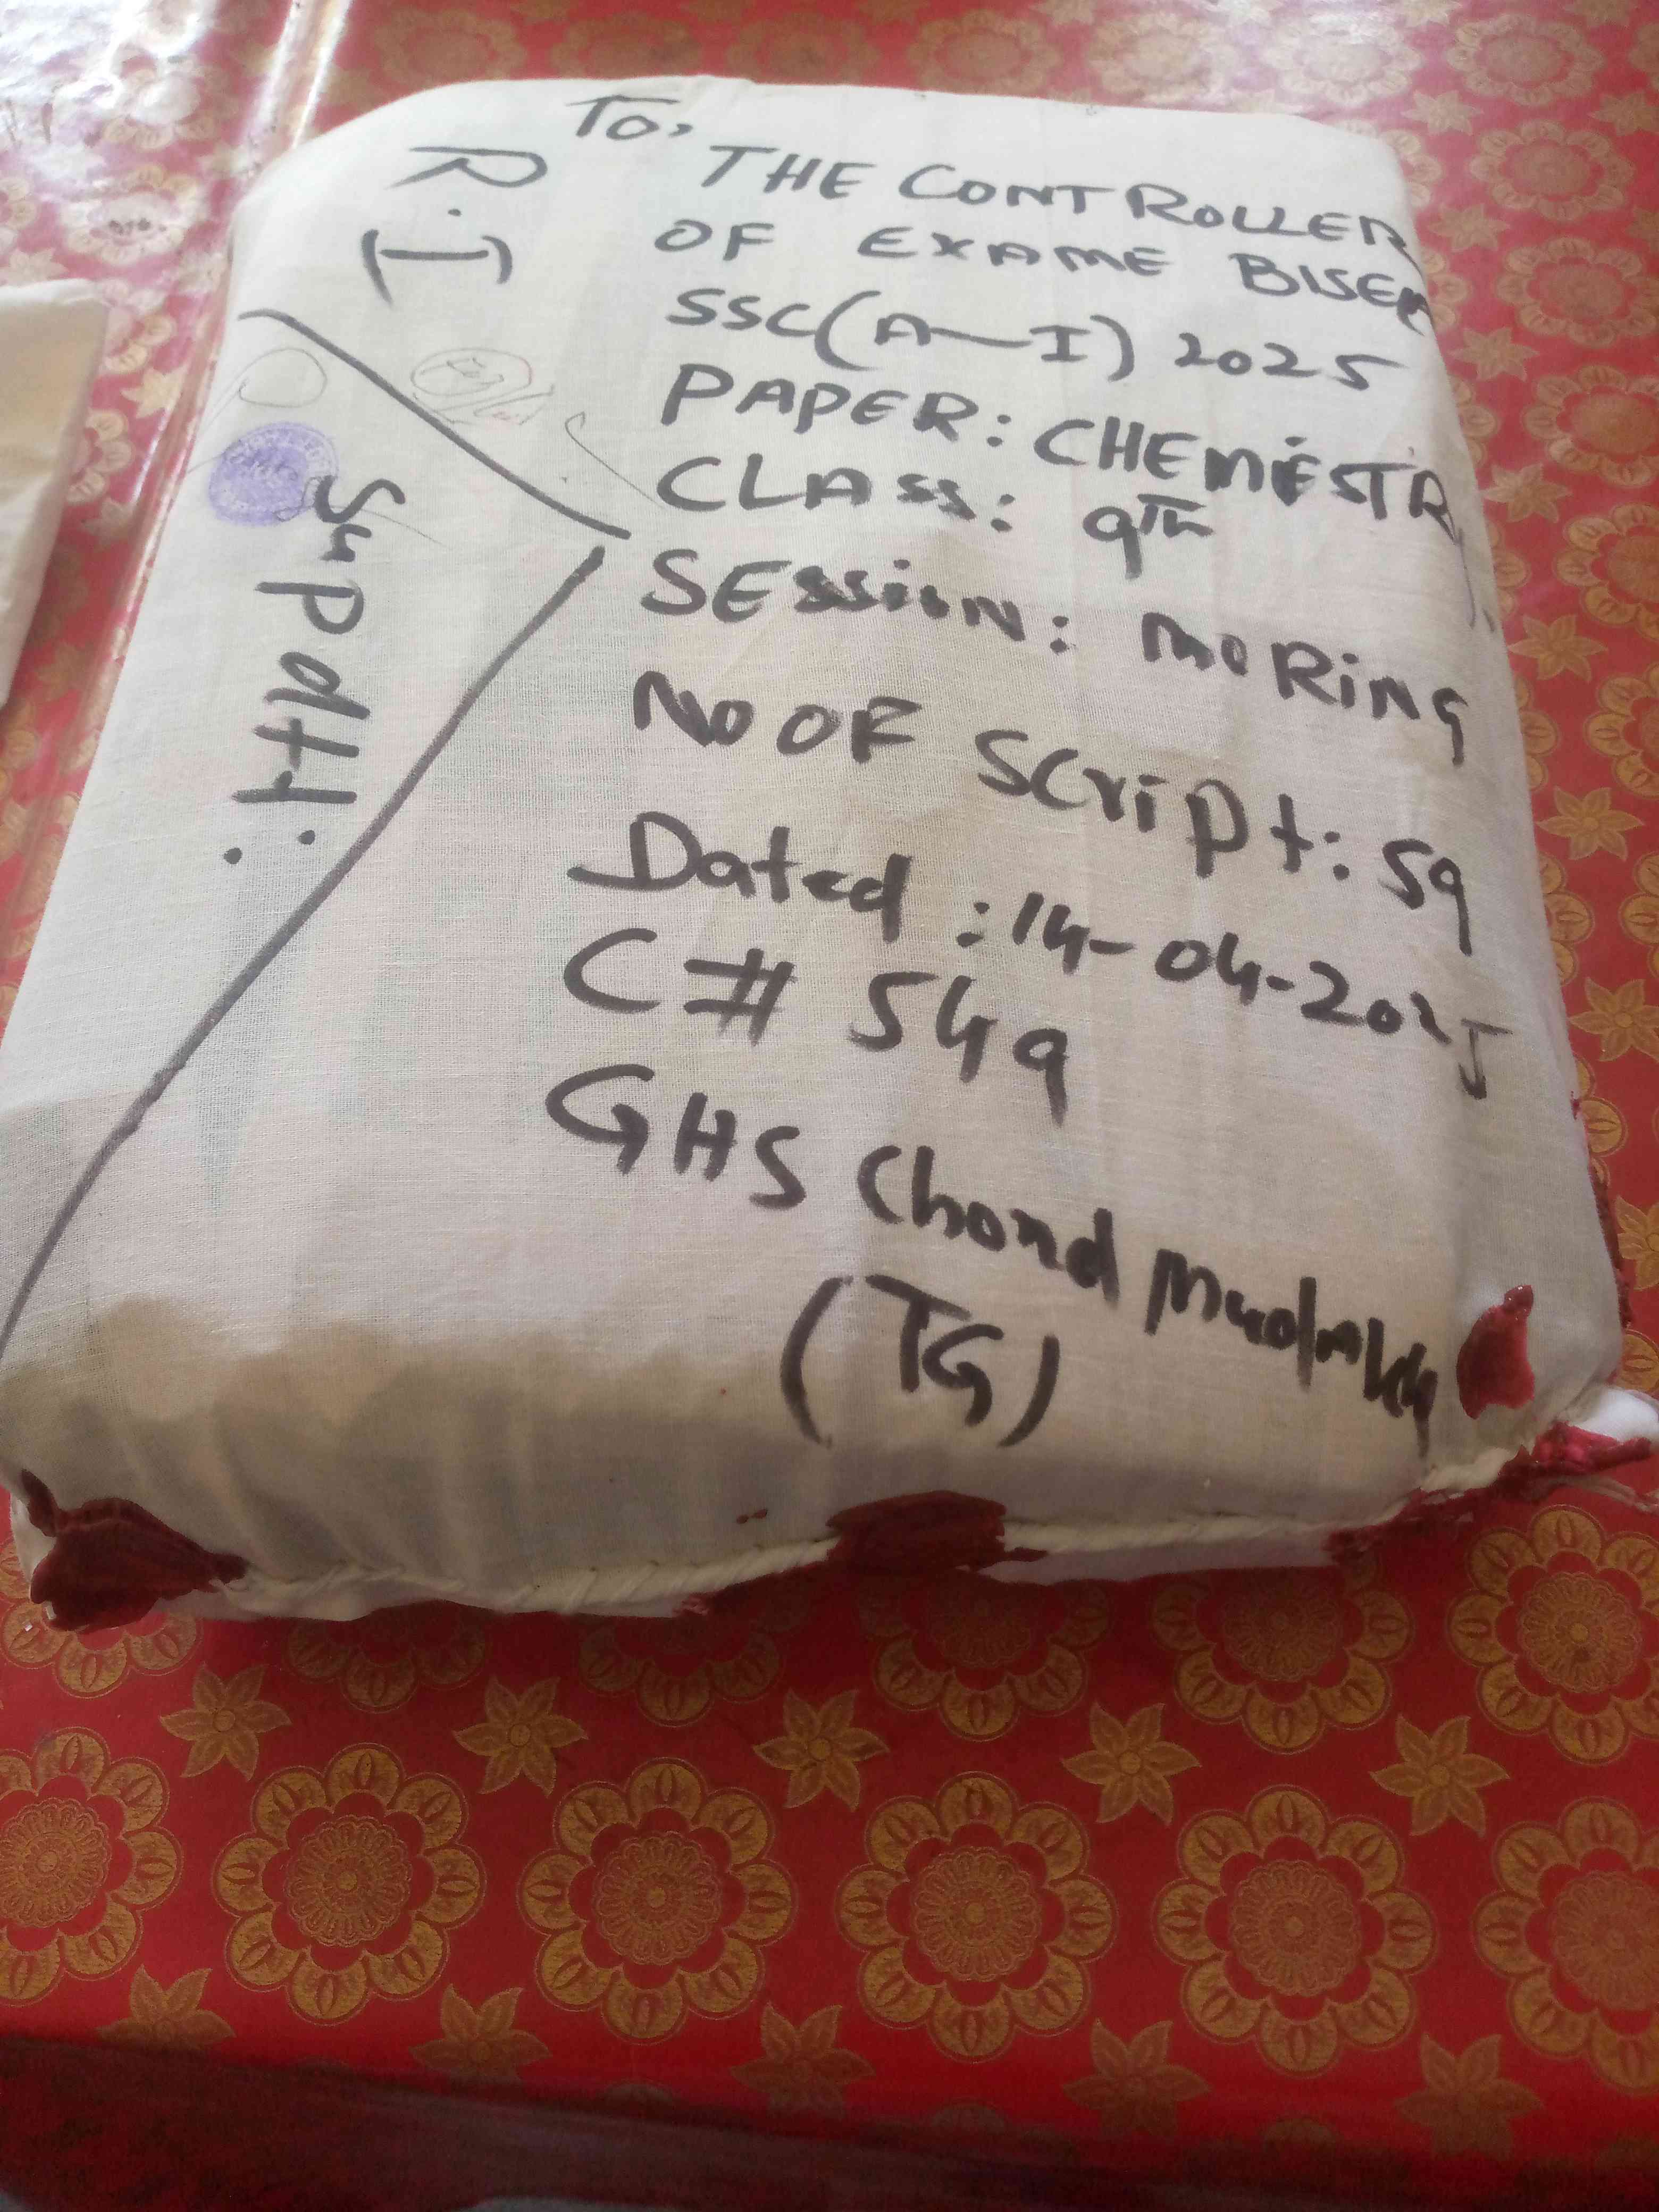 To,
THE CONTROLLER
OF EXAME BISER
SSC(A-I) 2025
PAPER: CHEMISTRY
CLASS: 9TH
SESSION: MORING
NO OF Script: 59
Dated: 14-04-2025
C# 549
GHS Chond
(TG)
R.
(I)
Supdtt: